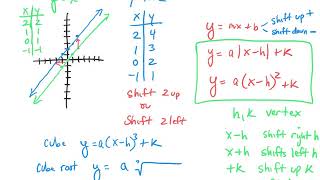 x | y
2 | 2
1 | 1
0 | 0
-1 | -1
x | y
2 | 4
1 | 3
0 | 2
-1 | 1
shift 2 up
or
shift 2 left
y = mx + b
shift up +
shift down -
y = a|x-h| + k
y = a(x-h)² + k
h,k vertex
x-h shift right h
x+h shifts left h
+k shift up k
cube y = a(x-h)³ + k
cube root y = a ∛